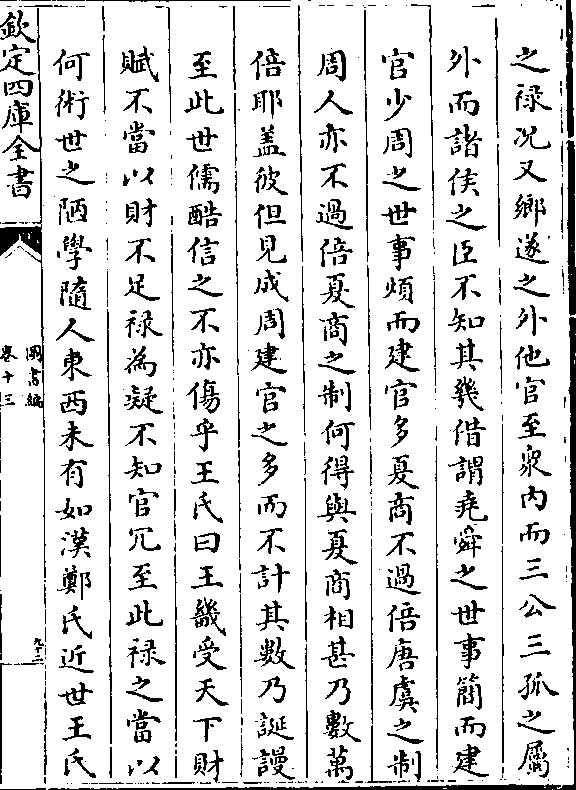 之禄况又鄉遂之外他官至衆内而三公三孤之屬
外而諸侯之臣不知其幾借謂堯舜之世事簡而建
官少周之世事煩而建官多夏商不過倍唐虞之制
周人亦不過倍夏商之制何得與夏商相甚乃數萬
倍耶盖彼但見成周建官之多而不計其數乃誕謾
至此世儒酷信之不亦傷乎王氏曰王畿受天下財
賦不當以財不足禄為疑不知官冗至此禄之當以
何術世之陋學隨人東西未有如漢鄭氏近世王氏
欽定四庫全書
圖書編
卷十三
九十二